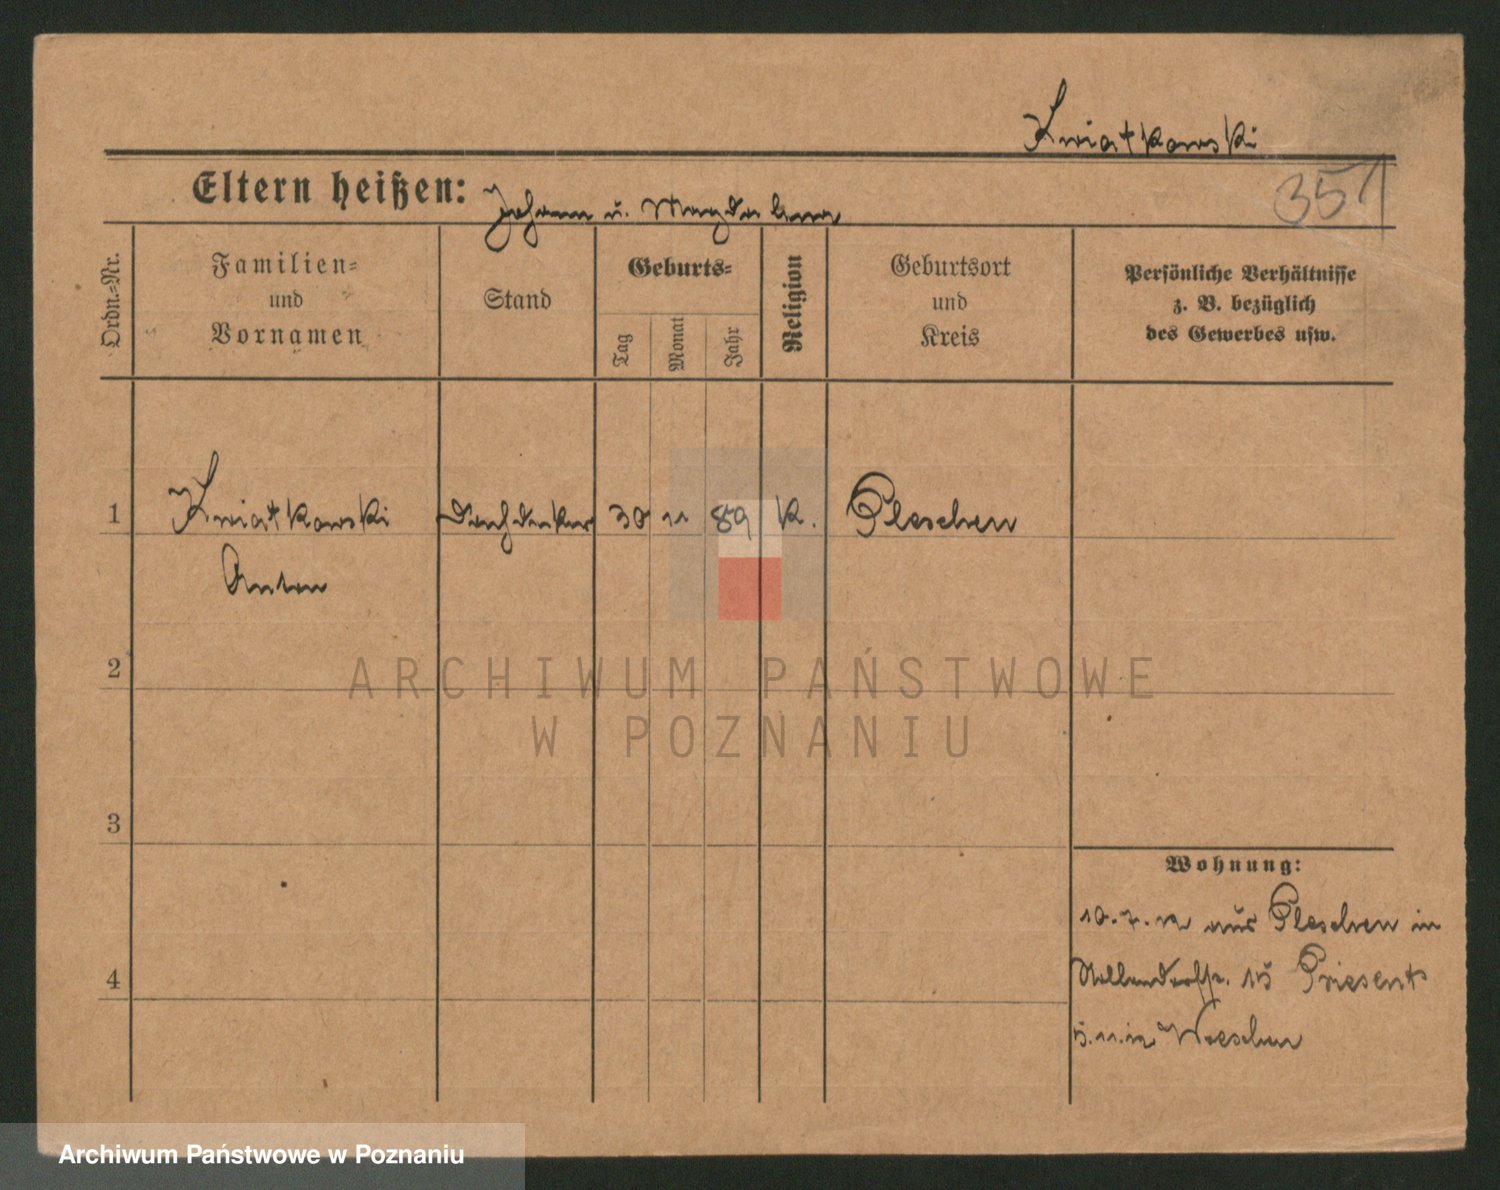 Kwiatkowski
351
Eltern heißen: Johann u. Magdalena
Ordn.-Nr.
Familien-
und
Vornamen
Stand
Geburts-
Tag
Monat
Jahr
Religion
Geburtsort
und
Kreis
Persönliche Verhältnisse
z. B. bezüglich
des Gewerbes usw.
1 Kwiatkowski Dachdecker 30 11 89 k. Pleschen
Anton
2
3
4
Wohnung:
10.7.12 aus Pleschen in
15
5.11.12 Wreschen
ARCHIWUM PAŃSTWOWE
W POZNANIU
Archiwum Państwowe w Poznaniu